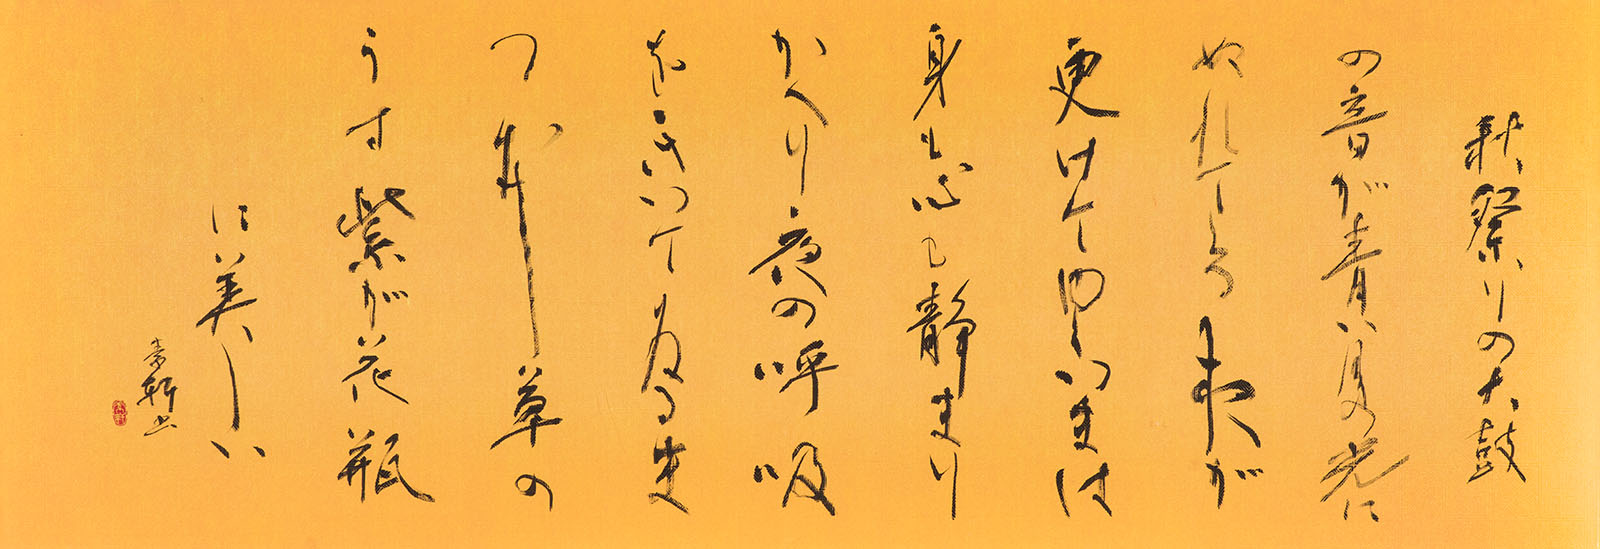 秋祭りの太鼓
の音が青い月の光に
ぬれてくる夜が
更けてゆくいまは
身も心も静まり
かへり夜の呼吸
をきいてゐるま
つむし草の
うす紫が花瓶
に美しい